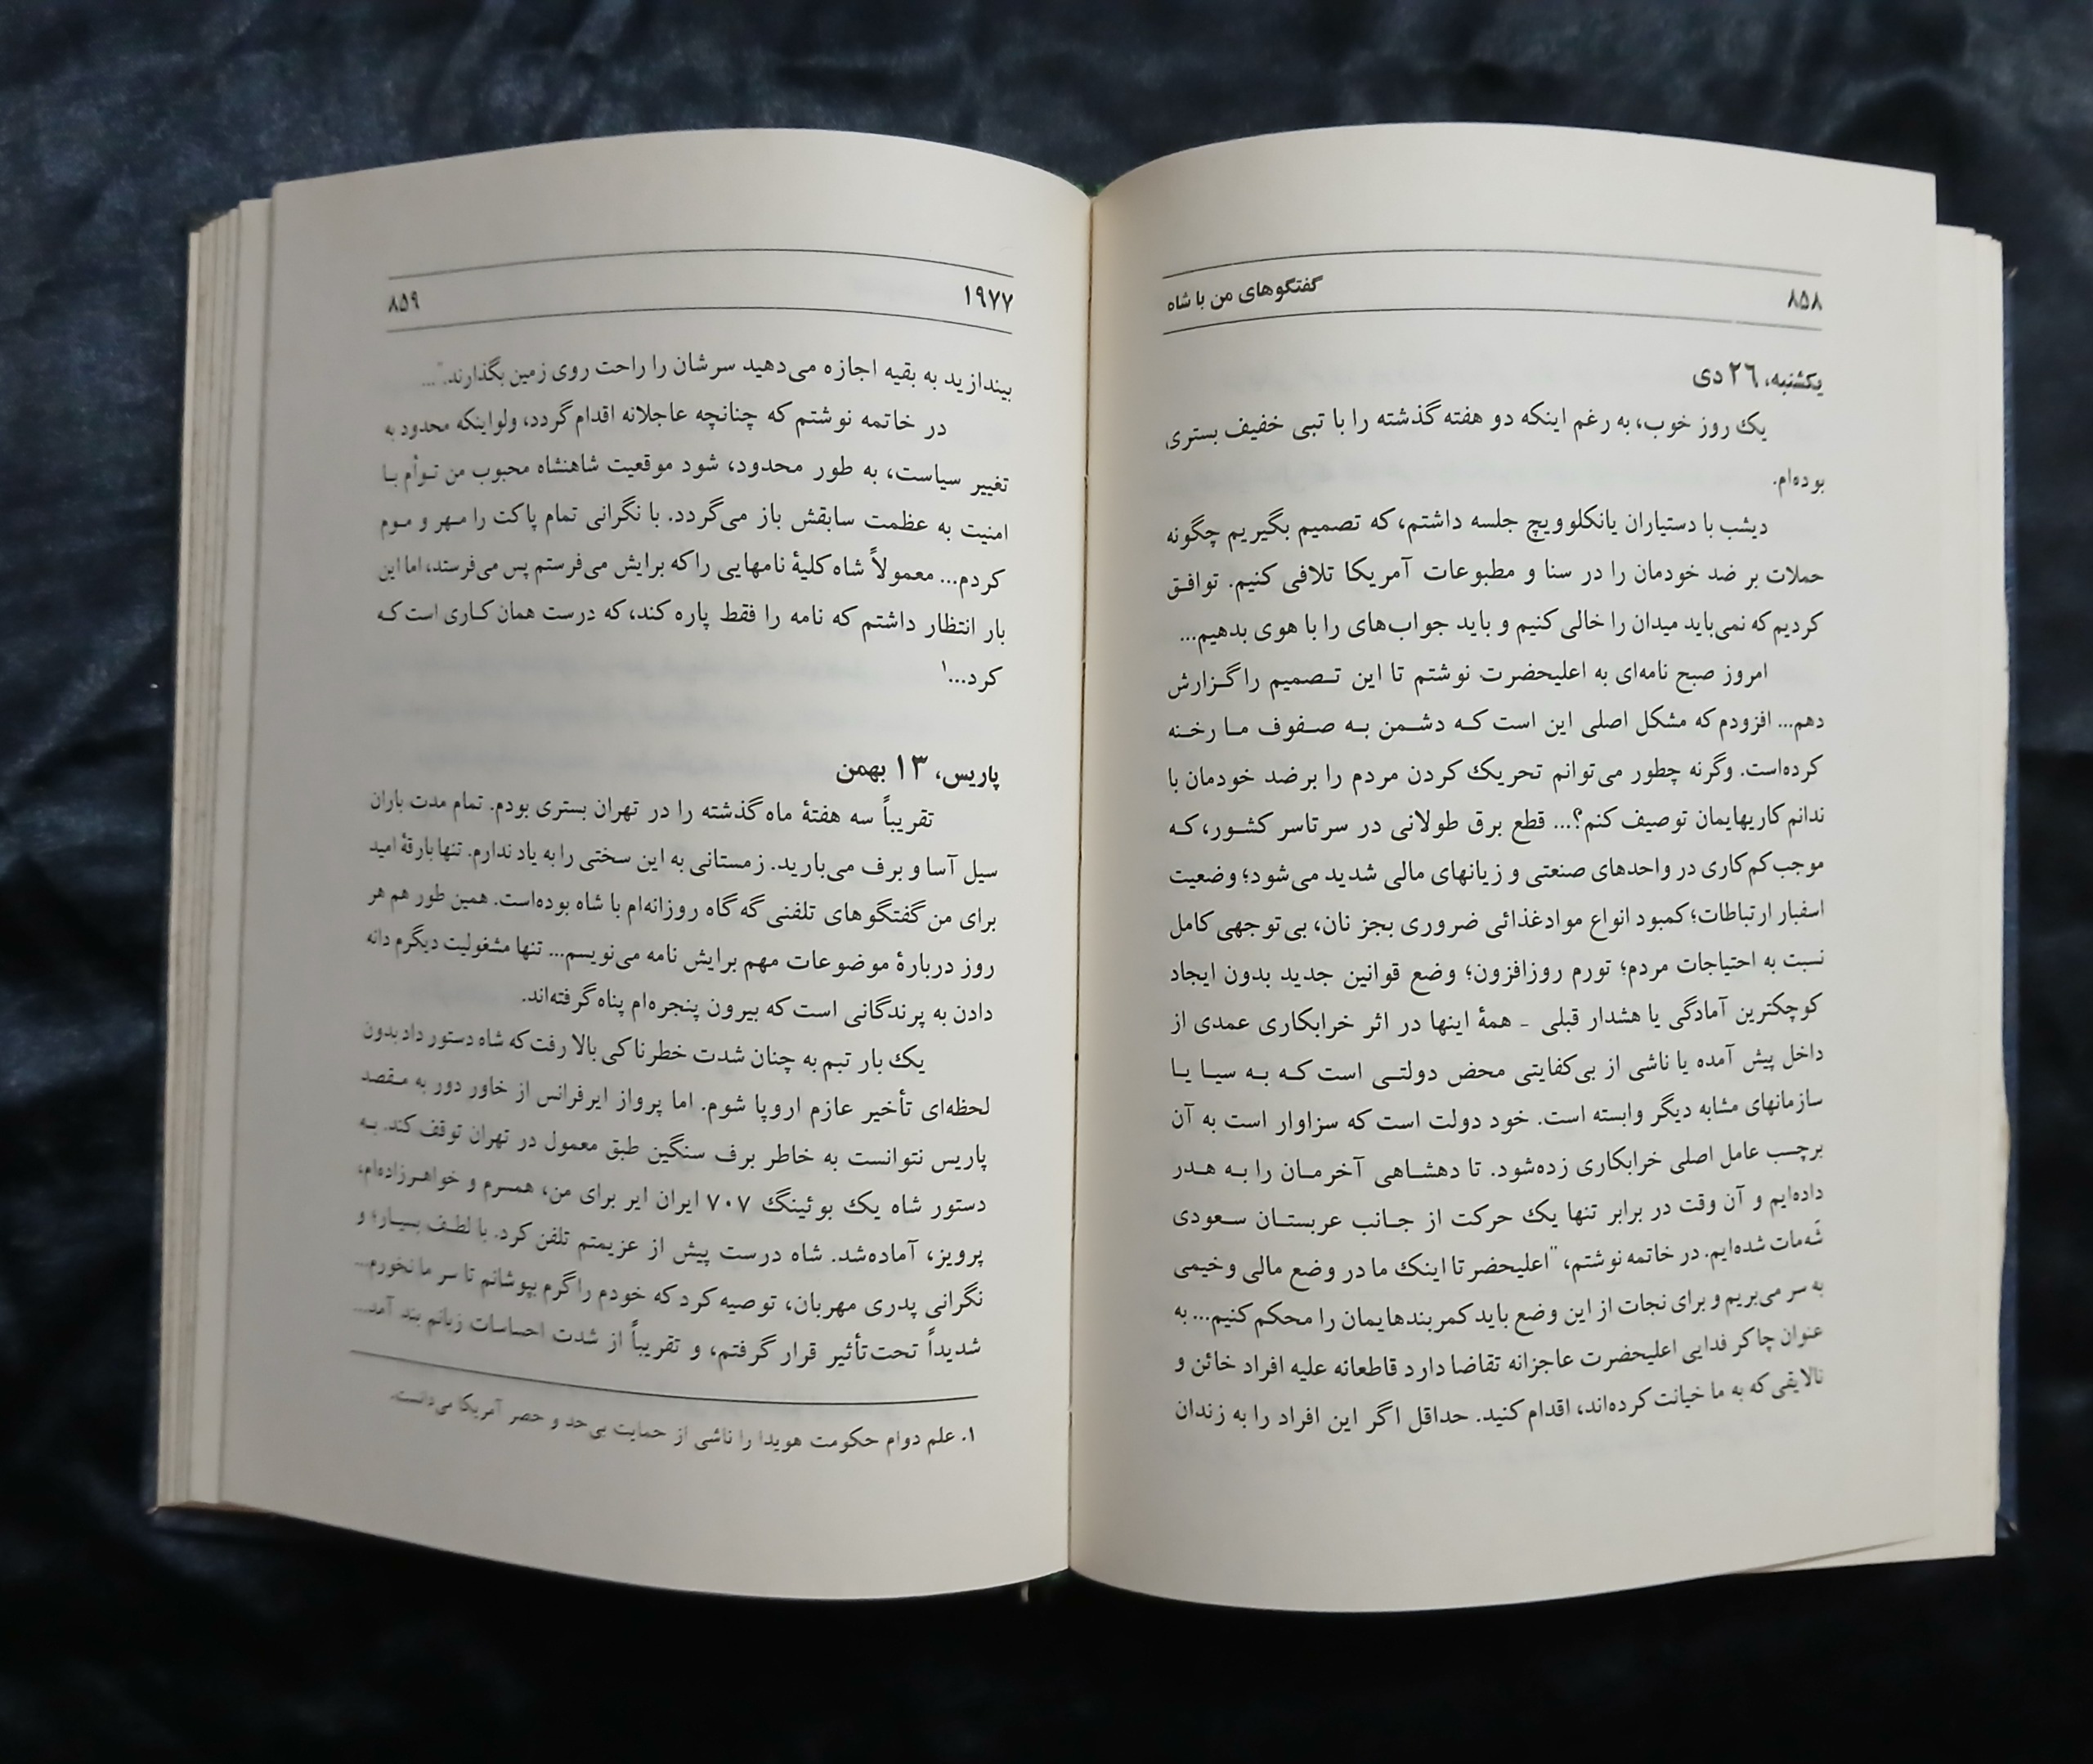 ۸۵۸ گفتگوهای من با شاه
یکشنبه، ۲۶ دی
یک روز خوب، به رغم اینکه دو هفته گذشته را با تبی خفیف بستری
بوده‌ام.
دیشب با دستیاران یانکلوویچ جلسه داشتم، که تصمیم بگیریم چگونه
حملات بر ضد خودمان را در سنا و مطبوعات آمریکا تلافی کنیم. توافق
کردیم که نمی‌باید میدان را خالی کنیم و باید جواب‌های را با هوی بدهیم...
امروز صبح نامه‌ای به اعلیحضرت نوشتم تا این تصمیم را گزارش
دهم... افزودم که مشکل اصلی این است که دشمن به صفوف ما رخنه
کرده‌است. وگرنه چطور می‌توانم تحریک کردن مردم را برضد خودمان با
ندانم کاریهایمان توصیف کنم؟... قطع برق طولانی در سرتاسر کشور، که
موجب کم کاری در واحدهای صنعتی و زیانهای مالی شدید می‌شود؛ وضعیت
اسفبار ارتباطات؛ کمبود انواع موادغذائی ضروری بجز نان، بی‌توجهی کامل
نسبت به احتیاجات مردم؛ تورم روزافزون؛ وضع قوانین جدید بدون ایجاد
کوچکترین آمادگی یا هشدار قبلی - همهٔ اینها در اثر خرابکاری عمدی از
داخل پیش آمده یا ناشی از بی‌کفایتی محض دولتی است که به سیا یا
سازمانهای مشابه دیگر وابسته است. خود دولت است که سزاوار است به آن
برچسب عامل اصلی خرابکاری زده‌شود. تا دهشاهی آخرمان را به هدر
داده‌ایم و آن وقت در برابر تنها یک حرکت از جانب عربستان سعودی
شَه‌مات شده‌ایم. در خاتمه نوشتم، "اعلیحضرتا اینک ما در وضع مالی وخیمی
به سر می‌بریم و برای نجات از این وضع باید کمربندهایمان را محکم کنیم... به
عنوان چاکر فدایی اعلیحضرت عاجزانه تقاضا دارد قاطعانه علیه افراد خائن و
نالایقی که به ما خیانت کرده‌اند، اقدام کنید. حداقل اگر این افراد را به زندان
۱۹۷۷ ۸۵۹
بیندازید به بقیه اجازه می‌دهید سرشان را راحت روی زمین بگذارند."...
در خاتمه نوشتم که چنانچه عاجلانه اقدام گردد، ولواینکه محدود به
تغییر سیاست، به طور محدود، شود موقعیت شاهنشاه محبوب من توأم با
امنیت به عظمت سابقش باز می‌گردد. با نگرانی تمام پاکت را مهر و موم
کردم... معمولاً شاه کلیهٔ نامهایی را که برایش می‌فرستم پس می‌فرستد، اما این
بار انتظار داشتم که نامه را فقط پاره کند، که درست همان کاری است که
کرد...۱
پاریس، ۱۳ بهمن
تقریباً سه هفتهٔ ماه گذشته را در تهران بستری بودم. تمام مدت باران
سیل آسا و برف می‌بارید. زمستانی به این سختی را به یاد ندارم. تنها بارقهٔ امید
برای من گفتگوهای تلفنی گه گاه روزانه‌ام با شاه بوده‌است. همین طور هم هر
روز دربارهٔ موضوعات مهم برایش نامه می‌نویسم... تنها مشغولیت دیگرم دانه
دادن به پرندگانی است که بیرون پنجره‌ام پناه گرفته‌اند.
یک بار تبم به چنان شدت خطرناکی بالا رفت که شاه دستور داد بدون
لحظه‌ای تأخیر عازم اروپا شوم. اما پرواز ایرفرانس از خاور دور به مقصد
پاریس نتوانست به خاطر برف سنگین طبق معمول در تهران توقف کند. به
دستور شاه یک بوئینگ ۷۰۷ ایران ایر برای من، همسرم و خواهرزاده‌ام،
پرویز، آماده‌شد. شاه درست پیش از عزیمتم تلفن کرد. با لطف بسیار؛ و
نگرانی پدری مهربان، توصیه کرد که خودم را گرم بپوشانم تا سرما نخورم...
شدیداً تحت‌تأثیر قرار گرفتم، و تقریباً از شدت احساسات زبانم بند آمد...
۱. علم دوام حکومت هویدا را ناشی از حمایت بی‌حد و حصر آمریکا می‌دانست.